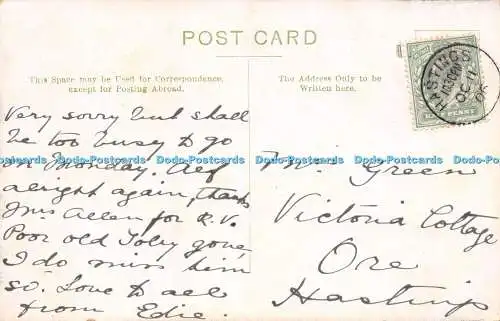 POST CARD
This Space may be Used for Correspondence,
except for Posting Abroad.
The Address Only to be
Written here.
HASTINGS
OC 11
HALFPENNY
Very sorry but shall
be too busy to go
on Monday. Alf
alright again, thanks
Mrs Allen for R.V.
Poor old Toby gone,
I do miss him
so. Love to all
from Edie.
Green
Victoria Cottage
Ore
Hastings
Dodo-Postcards Dodo-Postcards Dodo-Postcards Dodo-Postcards Dodo-Postcards Dodo-Postcards